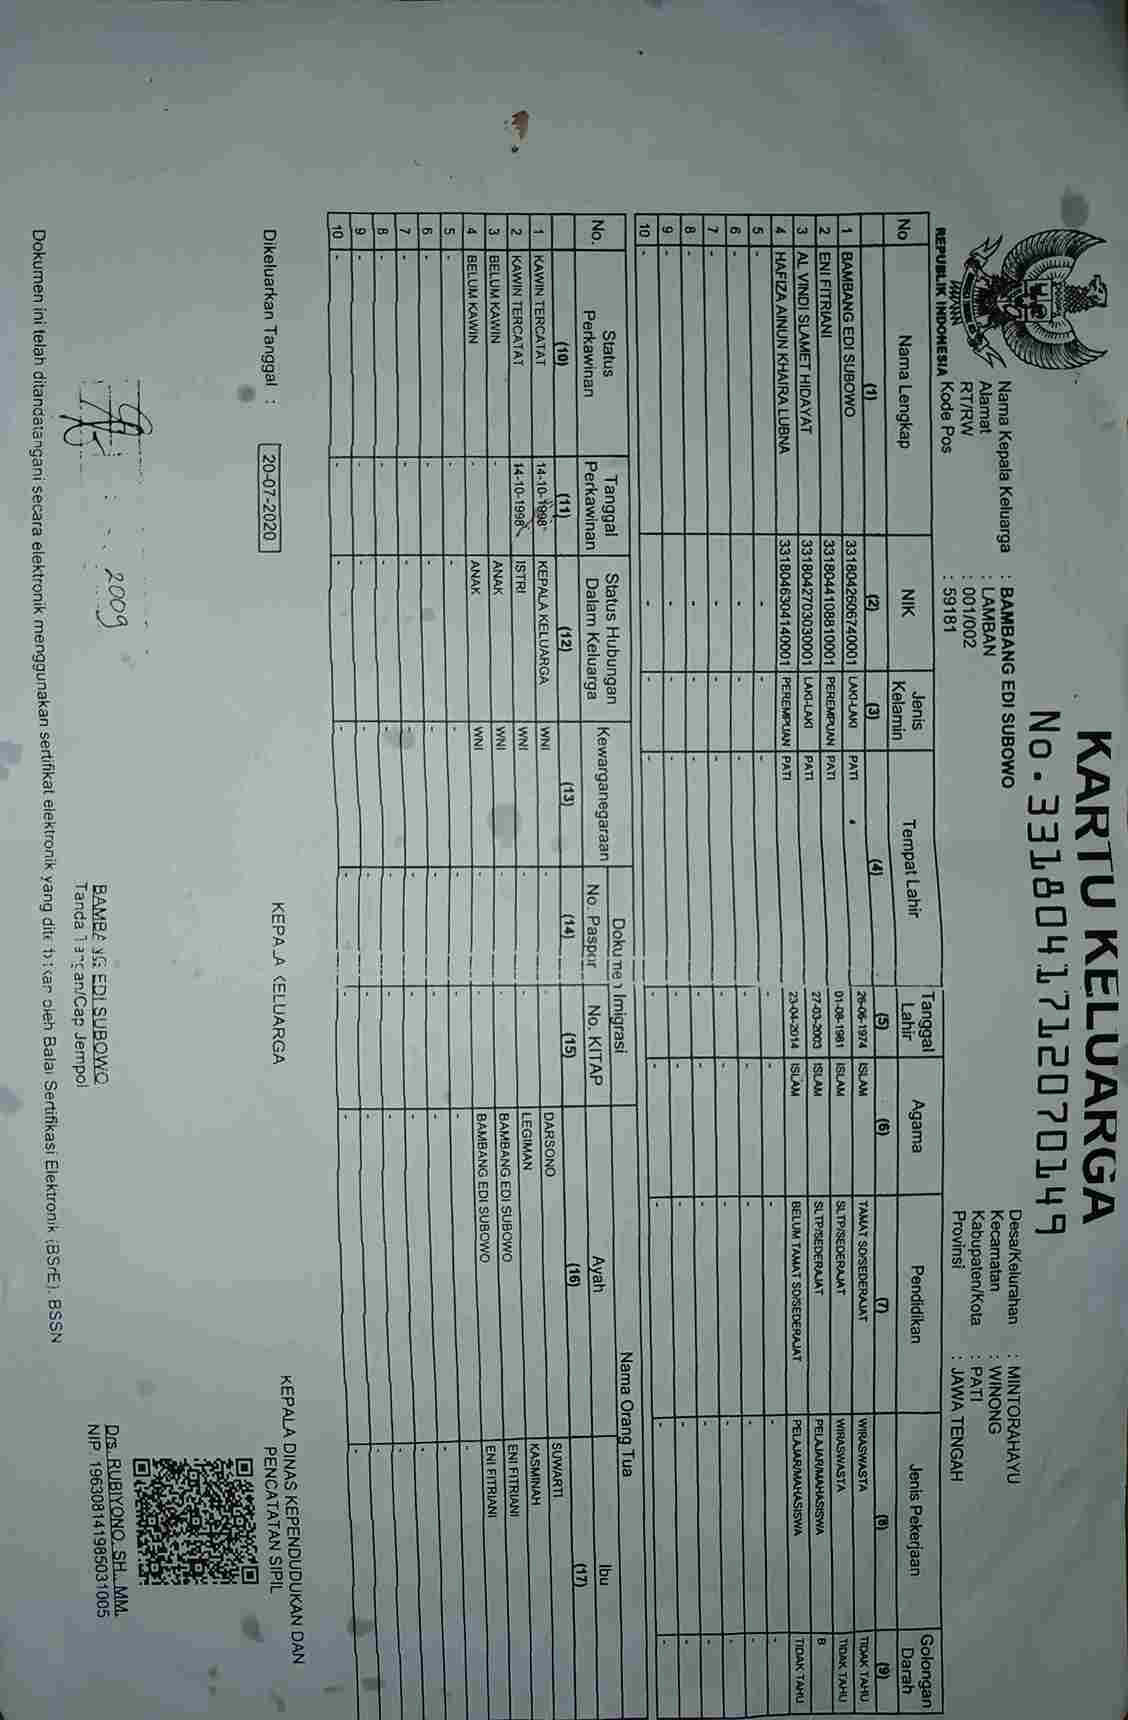 REPUBLIK INDONESIA
KARTU KELUARGA
No. 3318041712070149
Nama Kepala Keluarga : BAMBANG EDI SUBOWO
Alamat : LAMBAN
RT/RW : 001/002
Kode Pos : 59181
Desa/Kelurahan : MINTORAHAYU
Kecamatan : WINONG
Kabupaten/Kota : PATI
Provinsi : JAWA TENGAH
No Nama Lengkap NIK Jenis Kelamin Tempat Lahir Tanggal Lahir Agama Pendidikan Jenis Pekerjaan Golongan Darah
(1) (2) (3) (4) (5) (6) (7) (8) (9)
1 BAMBANG EDI SUBOWO 3318042606740001 LAKI-LAKI PATI 26-06-1974 ISLAM TAMAT SD/SEDERAJAT WIRASWASTA TIDAK TAHU
2 ENI FITRIANI 3318044108810001 PEREMPUAN PATI 01-08-1981 ISLAM SLTP/SEDERAJAT WIRASWASTA TIDAK TAHU
3 AL VINDI SLAMET HIDAYAT 3318042703030001 LAKI-LAKI PATI 27-03-2003 ISLAM SLTP/SEDERAJAT PELAJAR/MAHASISWA B
4 HAFIZA AINUN KHAIRA LUBNA 3318046304140001 PEREMPUAN PATI 23-04-2014 ISLAM BELUM TAMAT SD/SEDERAJAT PELAJAR/MAHASISWA TIDAK TAHU
5 - - - - - - - - -
6 - - - - - - - - -
7 - - - - - - - - -
8 - - - - - - - - -
9 - - - - - - - - -
10 - - - - - - - - -
No. Status Perkawinan Tanggal Perkawinan Status Hubungan Dalam Keluarga Kewarganegaraan Dokumen Imigrasi No. Paspor No. KITAP Nama Orang Tua Ayah Ibu
(10) (11) (12) (13) (14) (15) (16) (17)
1 KAWIN TERCATAT 14-10-1998 KEPALA KELUARGA WNI - - DARSONO SUWARTI
2 KAWIN TERCATAT 14-10-1998 ISTRI WNI - - LEGIMAN KASMINAH
3 BELUM KAWIN - ANAK WNI - - BAMBANG EDI SUBOWO ENI FITRIANI
4 BELUM KAWIN - ANAK WNI - - BAMBANG EDI SUBOWO ENI FITRIANI
5 - - - - - - - -
6 - - - - - - - -
7 - - - - - - - -
8 - - - - - - - -
9 - - - - - - - -
10 - - - - - - - -
Dikeluarkan Tanggal : 20-07-2020
KEPALA KELUARGA
BAMBANG EDI SUBOWO
Tanda Tangan/Cap Jempol
KEPALA DINAS KEPENDUDUKAN DAN
PENCATATAN SIPIL
Drs. RUBIYONO, SH., MM.
NIP. 196308141985031005
2009
Dokumen ini telah ditandatangani secara elektronik menggunakan sertifikat elektronik yang diterbitkan oleh Balai Sertifikasi Elektronik (BSrE), BSSN